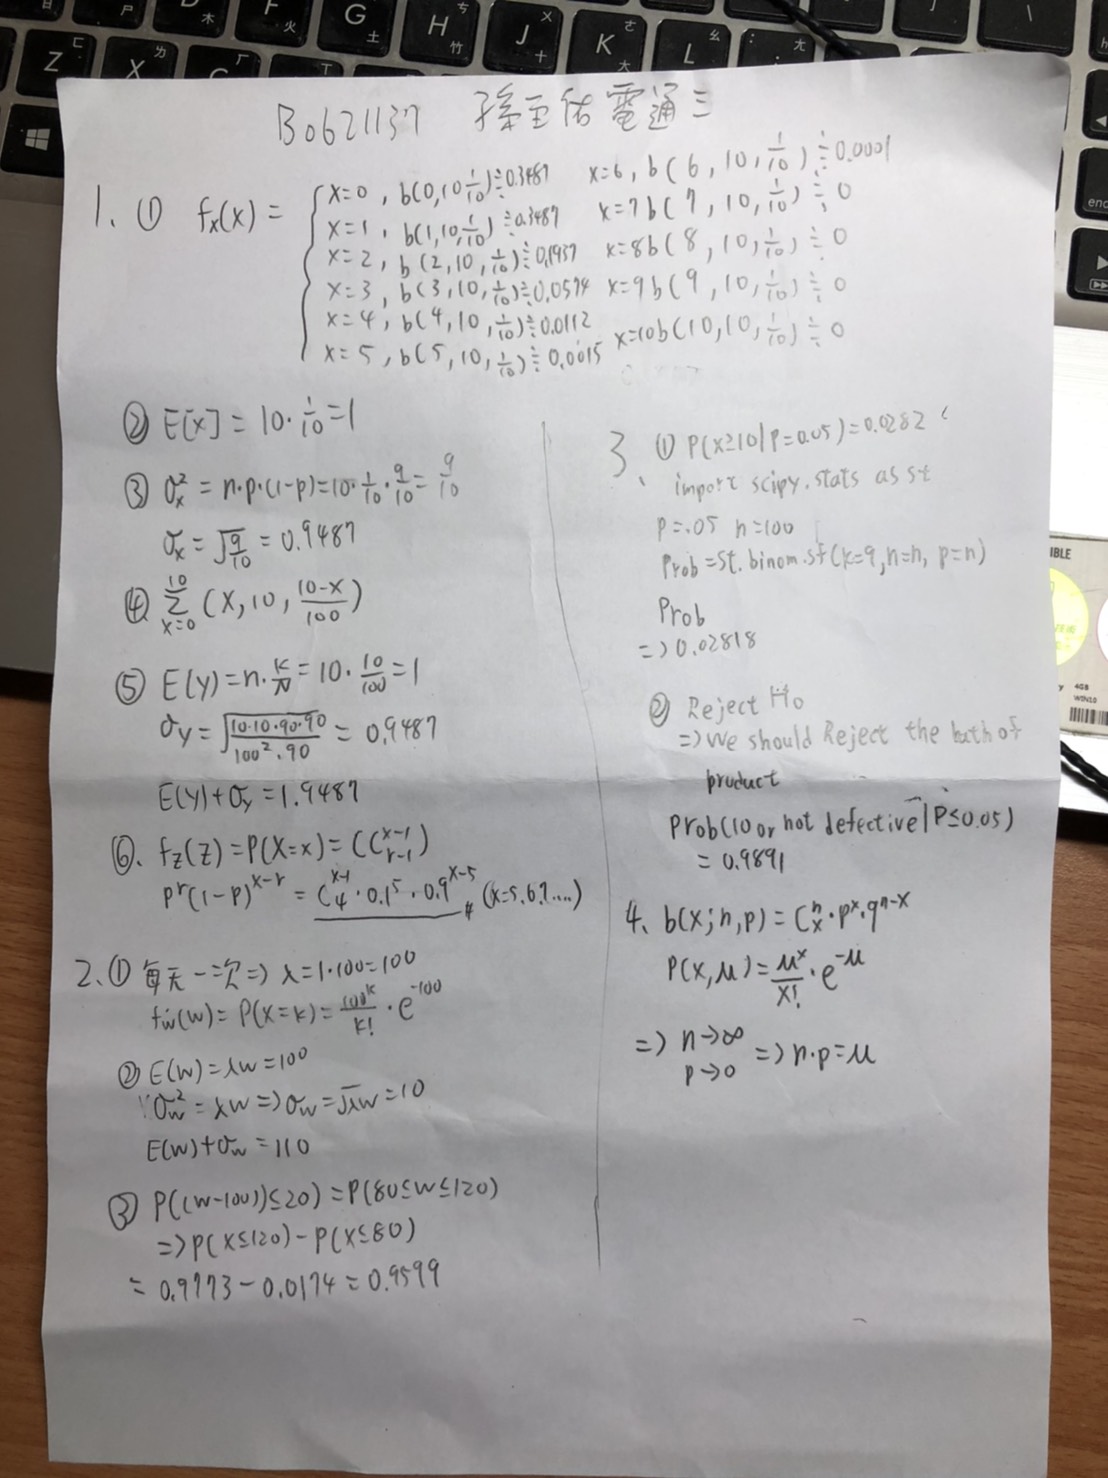 B0621137 孫 佑 電通三
1、① fx(x) =
x=0 , b(0,10 1/10)≒0.3487
x=1 , b(1,10,1/10)≒0.3487
x=2 , b(2,10,1/10)≒0.1937
x=3 , b(3,10,1/10)≒0.0574
x=4 , b(4,10,1/10)≒0.0112
x=5 , b(5,10,1/10)≒0.0015
x=6 , b(6,10,1/10)≒0.0001
x=7 b(7,10,1/10)≒0
x=8 b(8,10,1/10)≒0
x=9 b(9,10,1/10)≒0
x=10 b(10,10,1/10)≒0
② E[x] = 10·1/10=1
③ σx² = n·p·(1-p)=10·1/10·9/10=9/10
σx = √9/10 = 0.9487
④ Σ x=0 10 (x,10,10-x/100)
⑤ E(y)=n·K/N=10·10/100=1
σy = √10·10·90·90/100²·90 = 0.9487
E(y)+σy=1.9487
⑥. fz(z)=P(X=x)=(C x-1 r-1)
p^r(1-p)^x-r = C x-1 4·0.1^5·0.9^x-5 (x=5.6.7....)
2、① 每天一次=> λ=1·100=100
fw(w)=P(x=k)=100^k/k!·e^-100
② E(w)=λw=100
σw²=λw=>σw=√λw=10
E(w)+σw=110
③ P((w-100))≤20)=P(80≤w≤120)
=>P(x≤120)-P(x≤80)
=0.9773-0.0174=0.9599
3、① P(x≥10|P=0.05)=0.0282
import scipy.stats as st
P=.05 n=100
Prob=st.binom.sf(k=9,n=n, p=n)
Prob
=>0.02818
② Reject H0
=>we should Reject the bath of
product
Prob(10 or not defective|P≤0.05)
= 0.9891
4、b(x;n,p)=C n x·p^x·q^n-x
P(x,μ)=μ^x/x!·e^-μ
=> n→∞ p→0 =>n·p=μ